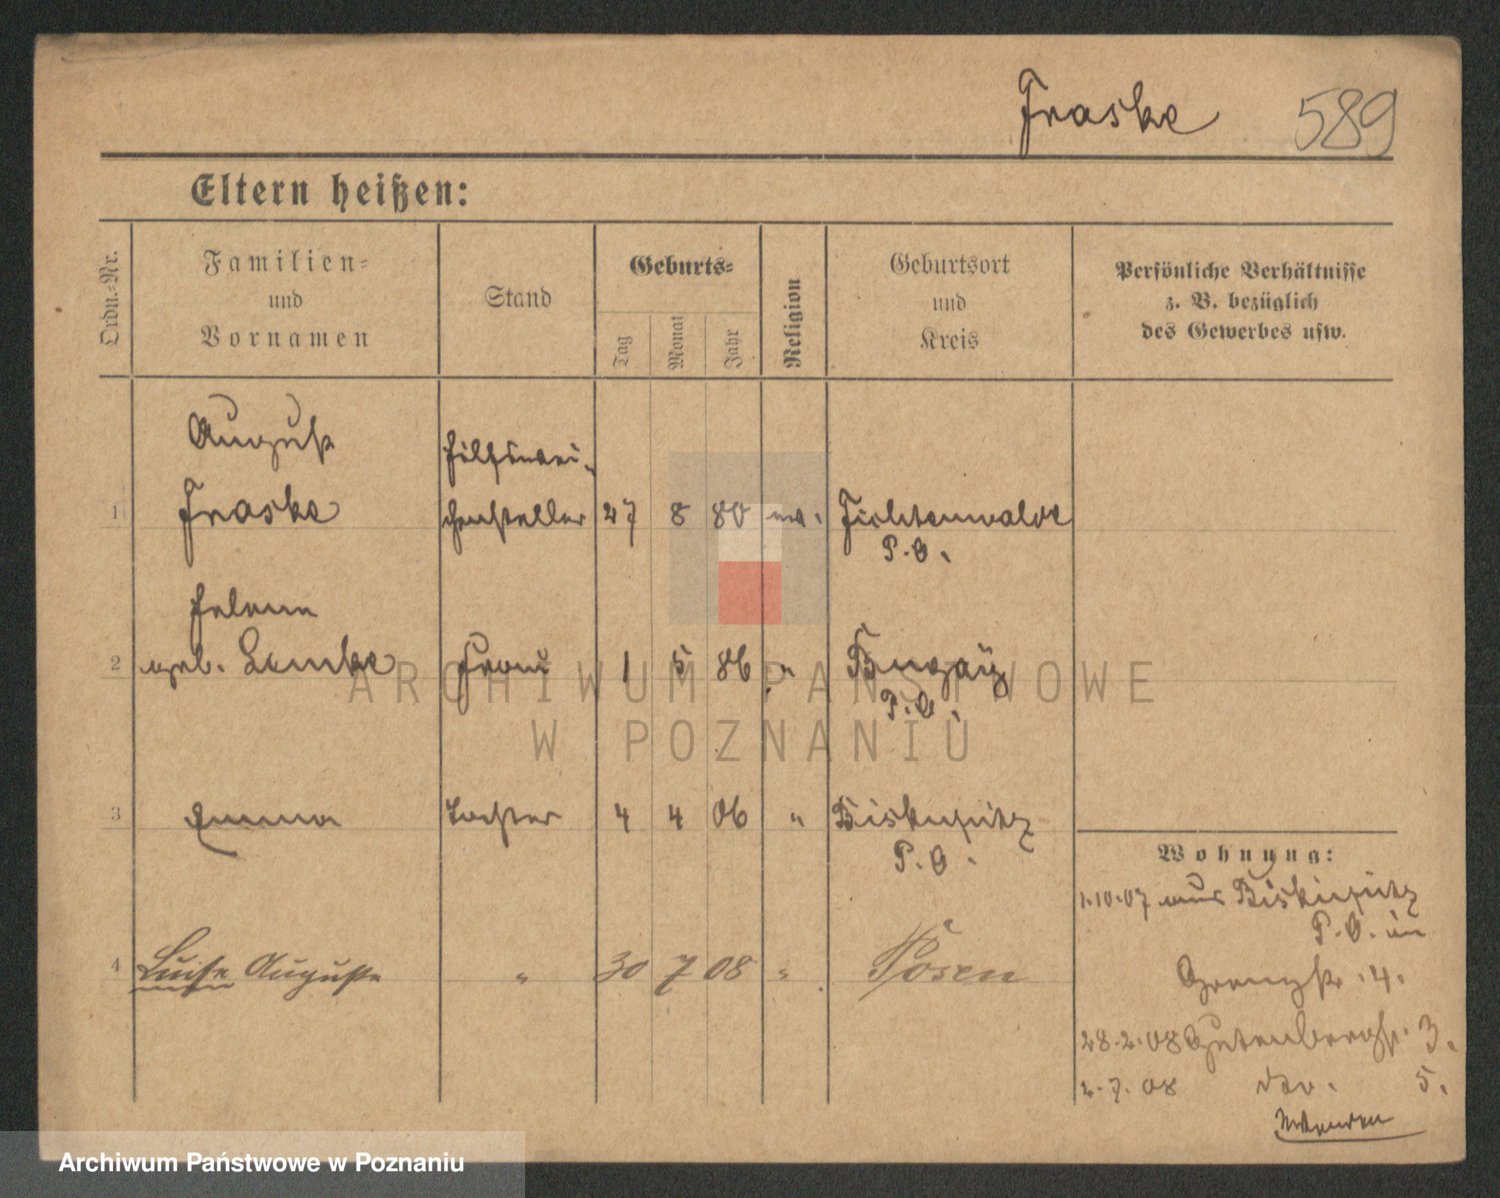 Fraske 589
Eltern heißen:
Ordn.-Nr.
Familien-
und
Vornamen
Stand
Geburts-
Tag
Monat
Jahr
Religion
Geburtsort
und
Kreis
Persönliche Verhältnisse
z. B. bezüglich
des Gewerbes usw.
August
Hilfswei-
1 Fraske chensteller 27 8 80 ev. Fichtenwalde
P. O.
Helene
2 geb. Lemke Frau 1 5 86 "
P. O.
3 Emma Tochter 4 4 06 " Biskupitz
P. O.
Wohnung:
1.10.07 aus Biskupitz
P. O. in
4 Luise Auguste " 30 7 08 " Posen
Grenzstr. 4.
28.2.08 Gutenbergstr. 3.
2.7.08 do. 5.
Wenden
ARCHIWUM PAŃSTWOWE
W POZNANIU
Archiwum Państwowe w Poznaniu